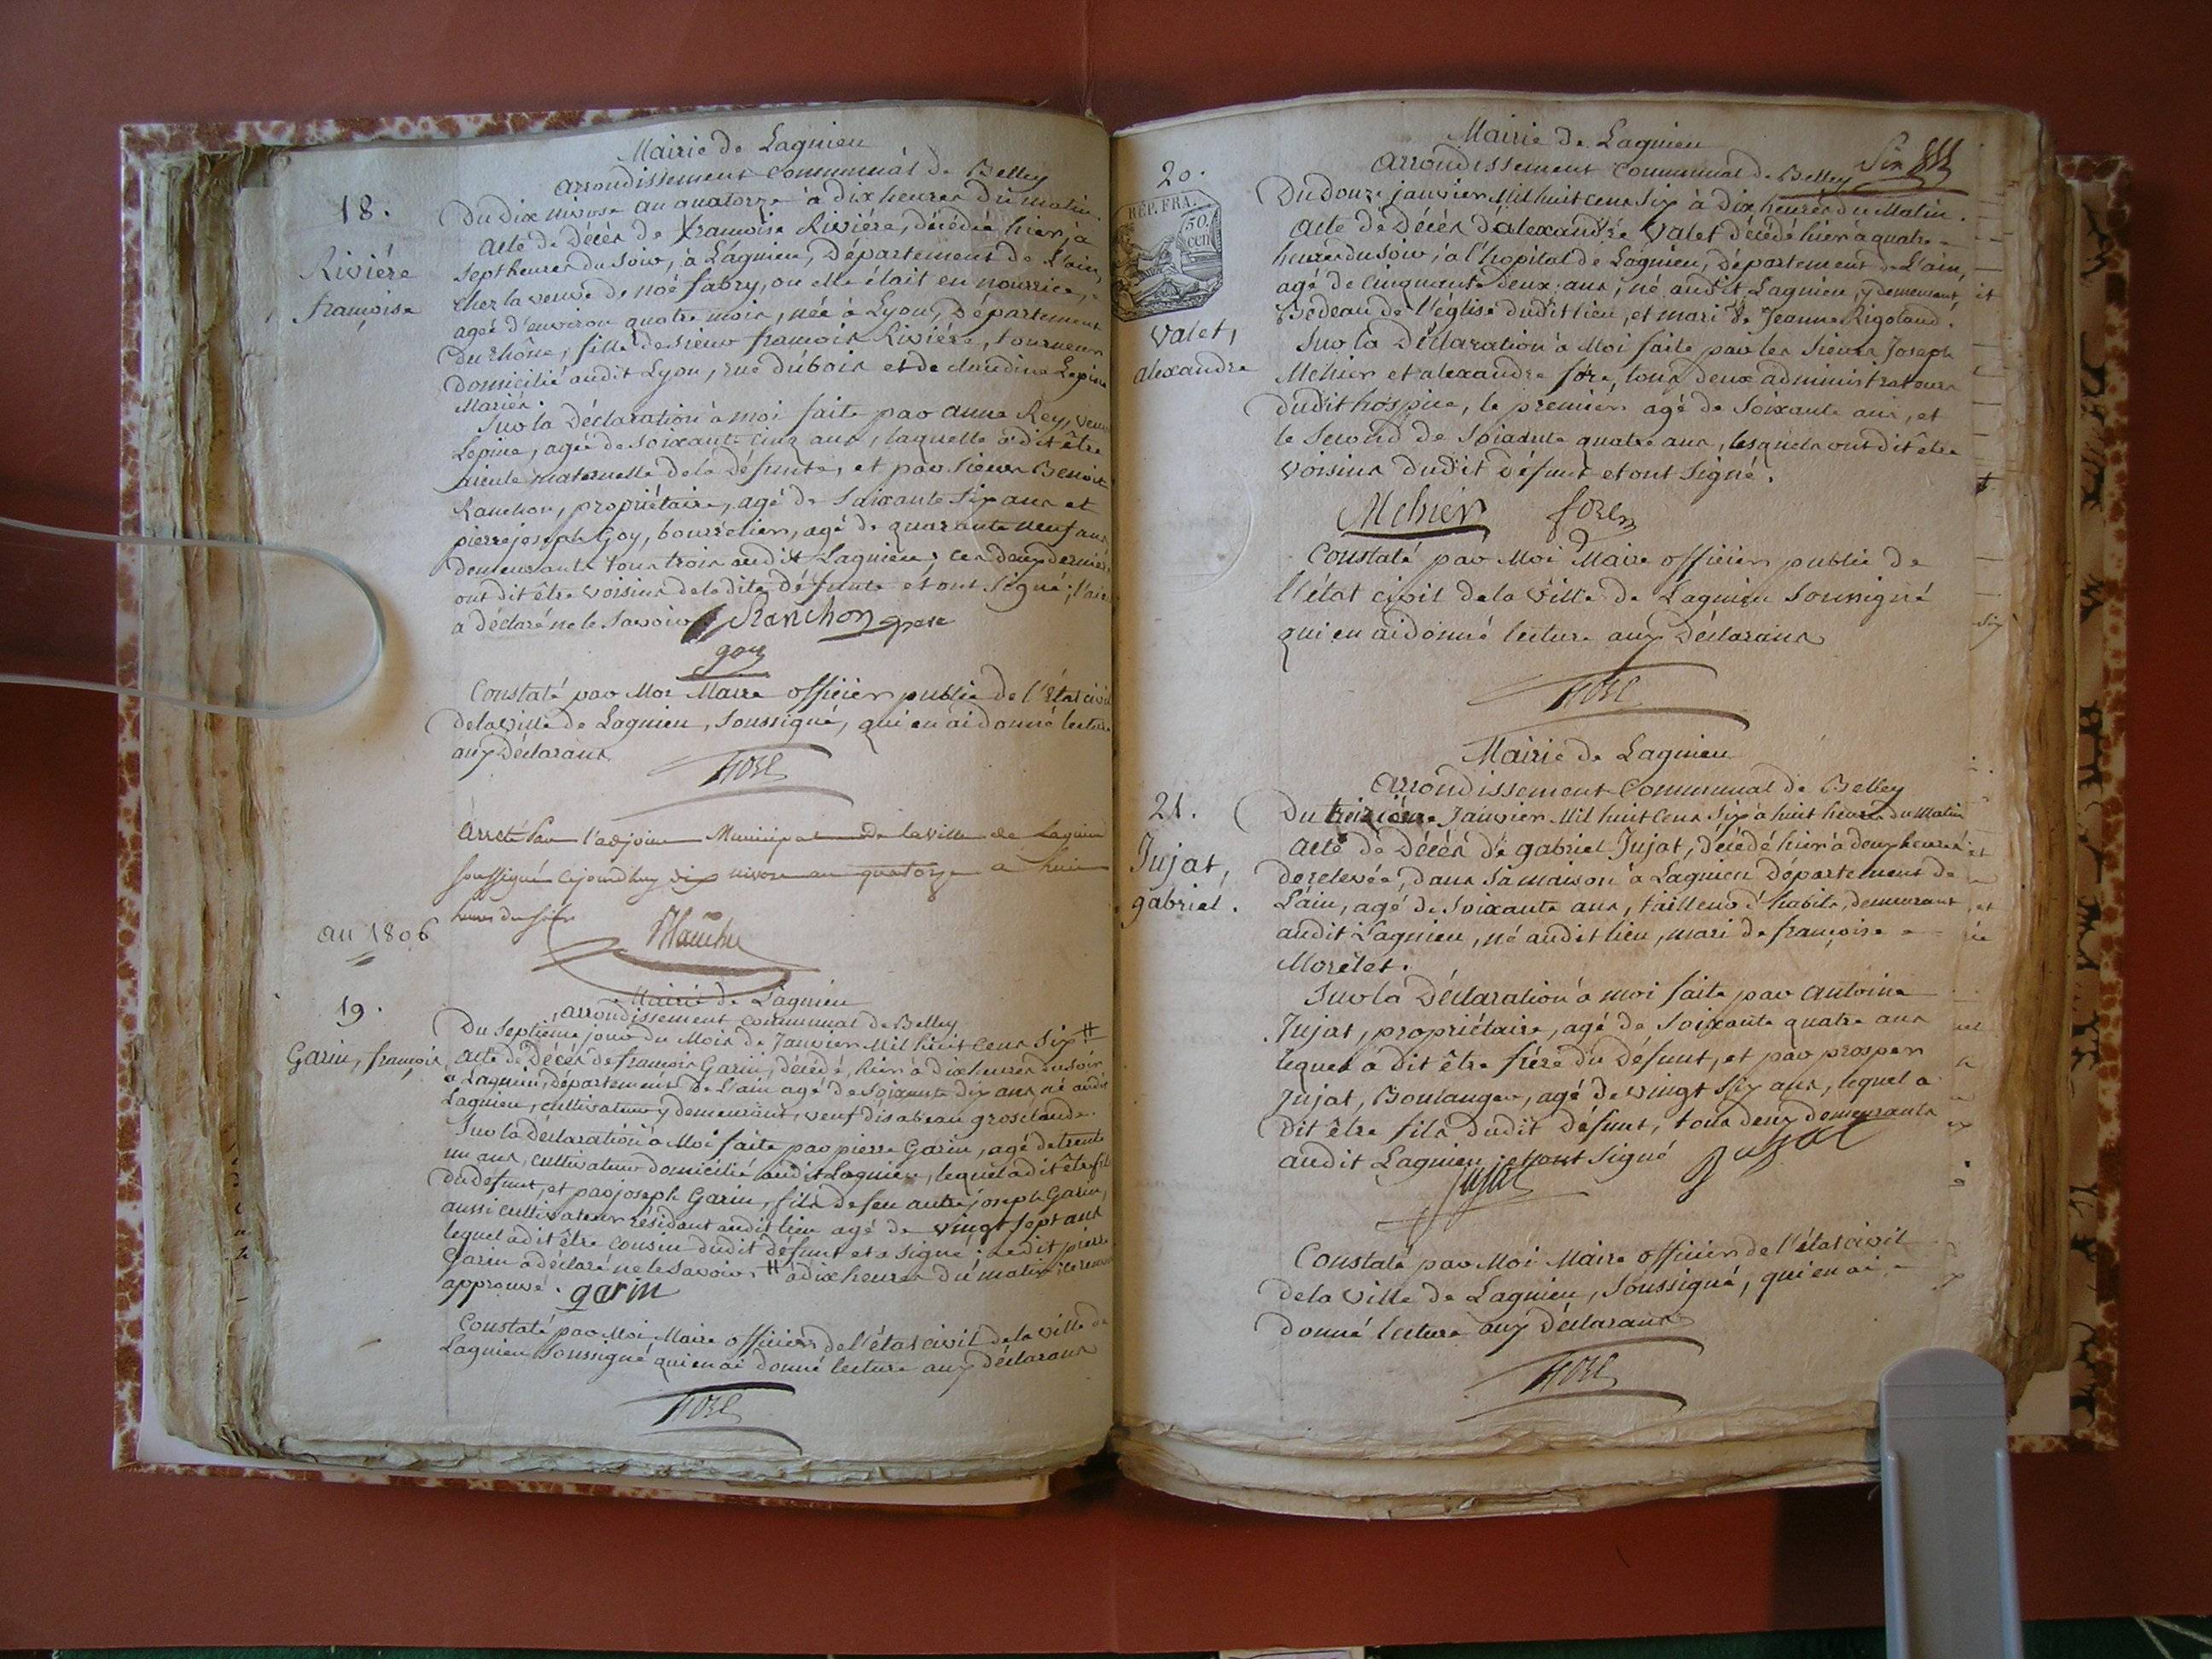 Mairie de Lagnieu
arrondissement Communal de Belley
18.
Rivière
françoise
Du dix nivose an quatorze à dix heures du matin.
acte de Décès de françoise Rivière, décédée hier, à
sept heures du soir, à Lagnieu, Département de l'ain,
chez la veuve de noé fabry, ou elle était en nourrice,
agée d'environ quatre mois, née à Lyon, Département
Du rhône, fille de sieur françois Rivière, tourneur
Domicilié audit Lyon, rue dubois et de claudine Lepine
Mariés.
Sur la Déclaration à moi faite par anne Rey, veuve
Lepine, agée de soixante cinq ans, laquelle a dit être
aieule maternelle de la Défunte, et par sieurs Benoit
Ranchon, propriétaire, agé de soixante six ans et
pierre joseph Goy, bourrelier, agé de quarante neuf ans
demeurants tous trois audit Lagnieu; ces deux derniers
ont dit être voisins de la dite défunte et ont signé;
a déclaré ne le savoir. Ranchon pere
goy
Constaté par Moi Maire officier public de l'état civil
de la ville de Lagnieu, soussigné, qui en ai donné lecture
aux Déclarants
fore
Arreté par l'adjoint Municipal de la ville de Lagnieu
soussigné cejourdhuy dix nivose an quatorze a huit
heures du soir
an 1806
Mairie de Lagnieu
arrondissement communal de Belley
19.
Garin, françois
Du septieme jour du Mois de Janvier Mil huit Cent Six #
acte de Décès de françois Garin, décédé, hier à dix heures du soir
a Lagnieu, département de l'ain agé de Soixante dix ans, né audit
Lagnieu, cultivateur y demeurant, veuf d'isabeau grosclaude.
Sur la déclaration à Moi faite par pierre Garin, agé de trente
un ans, cultivateur domicilié audit Lagnieu, lequel a dit être fils
du défunt, et par joseph Garin, fils de feu autre joseph Garin,
aussi cultivateur résidant audit lieu agé de vingt sept ans
lequel a dit être cousin dudit défunt et a signé; Ledit pierre
Garin a déclaré ne le savoir. # à dix heures du matin; le renvoi
approuvé. garin
Constaté par Moi Maire officier de l'état civil de la ville de
Lagnieu soussigné qui en ai donné lecture aux déclarants
fore
Mairie de Lagnieu
arrondissement Communal de Belley
Six
20.
RÉP. FRA.
50.
cen
Valet,
alexandre
Du douze janvier Mil huit cent Six à dix heures du Matin.
acte de Décès d'alexandre Valet décédé hier à quatre
heures du soir, à l'hopital de Lagnieu, Département de L'ain,
agé de Cinquante deux ans, né audit Lagnieu, y demeurant
Bedeau de l'église dudit lieu, et mari de Jeanne Rigotaud.
Sur la Déclaration à Moi faite par les Sieurs Joseph
Mehier et alexandre fore, tous deux administrateurs
dudit hospice, le premier agé de Soixante ans, et
le Second de Soixante quatre ans, lesquels ont dit être
voisins dudit Défunt et ont Signé.
Mehier fore
Constaté par Moi Maire officier public de
l'état civil de la Ville de Lagnieu Soussigné
qui en ai donné lecture aux Déclarants
fore
Mairie de Lagnieu
arrondissement Communal de Belley
21.
Jujat,
gabriel.
Du treizième Janvier Mil huit Cent Six à huit heures du Matin
acte de Décès de gabriel Jujat, décédé hier à deux heures
de relevée, dans sa maison à Lagnieu Département de
L'ain, agé de Soixante ans, tailleur d'habits, demeurant
audit Lagnieu, né audit lieu, mari de françoise
Morelet.
Sur la Déclaration à moi faite par antoine
Jujat, propriétaire, agé de Soixante quatre ans
lequel a dit être frère du Défunt, et par prosper
Jujat, Boulanger, agé de vingt Six ans, lequel a
dit être fils dudit Défunt, tous deux demeurants
audit Lagnieu; et ont Signé Jujat
Jujat
Constaté par Moi Maire officier de l'état civil
de la Ville de Lagnieu, Soussigné, qui en ai
donné lecture aux Déclarants
fore